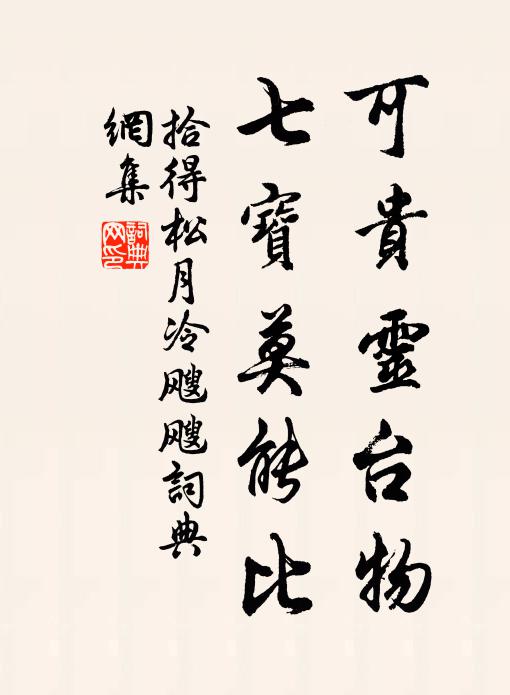 可貴靈台物
七寶莫能比
拾得松月冷颼颼詞典
網集
詞典
网印